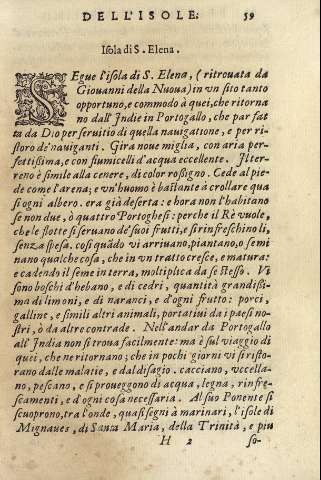 DELL'ISOLE. 59
Isola di S. Elena.
SEgue l'isola di S. Elena, (ritrouata da
Giouanni della Nuoua) in vn sito tanto
opportuno, e commodo à quei, che ritorna
no dall'Indie in Portogallo, che par fat
ta da Dio per seruitio di quella nauigatione, e per ri-
storo de' nauiganti. Gira noue miglia, con aria per-
fettißima, e con fiumicelli d'acqua eccellente. Il ter-
reno è simile alla cenere, di color roßigno. Cede al pie-
de come l'arena; e vn'huomo è bastante à crollare qua
si ogni albero. era già deserta: e hora non l'habitano
se non due, ò quattro Portoghesi: perche il Rè vuole,
che le flotte si seruano de' suoi frutti, e si rinfreschino lì,
senza spesa. così quādo vi arriuano, piantano, o semi
nano qualche cosa, che in vn tratto cresce, e matura:
e cadendo il seme in terra, moltiplica da se stesso. Vi
sono boschi d'hebano, e di cedri, quantità grandißi-
ma di limoni, e di naranci, e d'ogni frutto: porci,
galline, e simili altri animali, portatiui da i paesi no-
stri, ò da altre contrade. Nell'andar da Portogallo
all'India non si troua facilmente: ma è sul viaggio di
quei, che ne ritornano; che in pochi giorni vi si risto-
rano dalle malatie, e dal disagio. cacciano, vccella-
no, pescano, e si proueggono di acqua, legna, rinfre-
scamenti, e d'ogni cosa necessaria. Al suo Ponente si
scuoprono, tra l'onde, quasi segni à marinari, l'isole di
Mignaues, di Santa Maria, della Trinità, e piu
H 2 so-